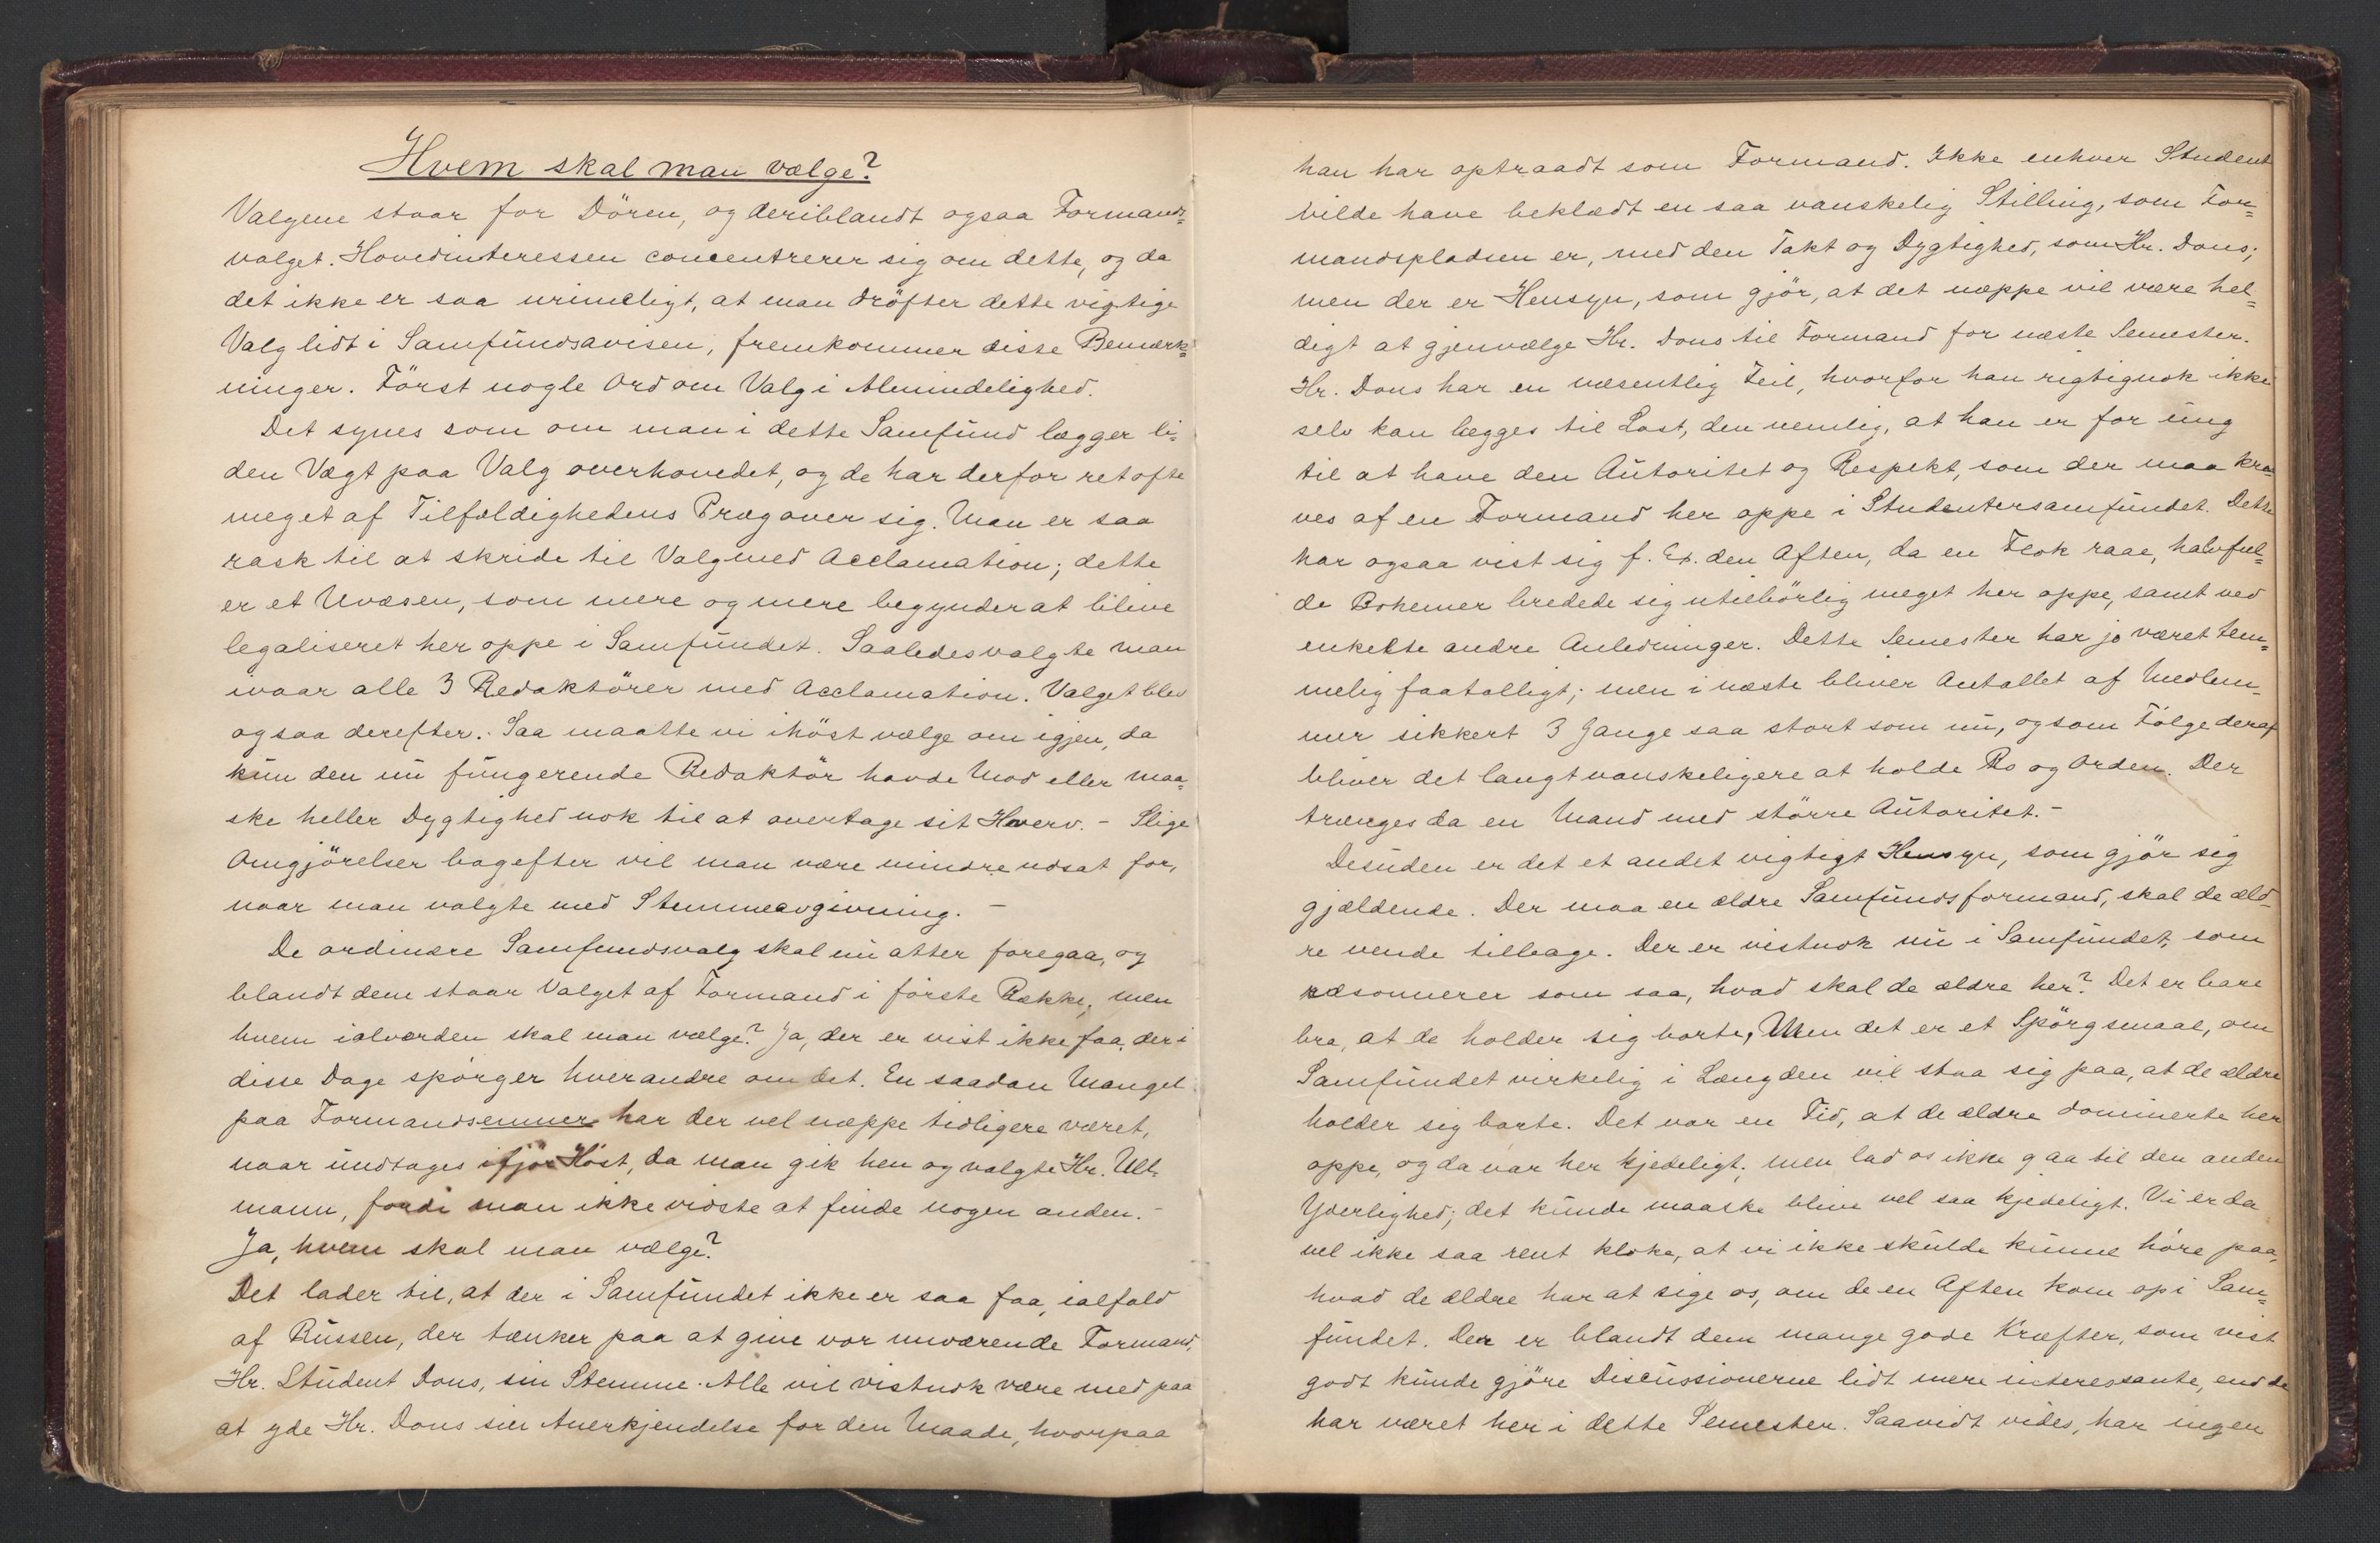 Hvem skal man vælge?
Valgene staar for Dören, og deriblandt ogsaa Formands=
valget. Hovedinteressen concentrerer sig om dette, og da
det ikke er saa urimeligt, at man dröfter dette vigtige
Valg lidt i Samfundsavisen, fremkommer disse Bemærk=
ninger. Först nogle Ord om Valg i Almindelighed.
Det synes som om man i dette Samfund lægger li=
den Vægt paa Valg overhovedet, og de har derfor ret ofte
meget af Tilfældighedens Præg over sig. Man er saa
rask til at skride til Valg med Acclamation; dette
er et Uvæsen, som mere og mere begynder at blive
legaliseret her oppe i Samfundet. Saaledes valgte man
ivaar alle 3 Redaktörer med Acclamation. Valget blev
ogsaa derefter. Saa maatte vi ihöst vælge om igjen, da
kun den nu fungerende Redaktör havde Mod eller maa=
ske heller Dygtighed nok til at overtage sit Hverv. – Slige
Omgjörelser bagefter vil man være mindre udsat for,
naar man valgte med Stemmeavgivning. –
De ordinære Samfundsvalg skal nu atter foregaa, og
blandt dem staar Valget af Formand i förste Række; men
hvem ialverden skal man vælge? Ja, der er vist ikke faa, der i
disse Dage spörger hverandre om det. En saadan Mangel
paa Formandsemner har der vel næppe tidligere været,
naar undtages ifjör Höst, da man gik hen og valgte Hr. Ull=
mann, fordi man ikke vidste at finde nogen anden. –
Ja, hvem skal man vælge?
Det lader til, at der i Samfundet ikke er saa faa, ialfald
af Russen, der tænker paa at give vor nuværende Formand,
Hr. Student Dons, sin Stemme. Alle vil vistnok være med paa
at yde Hr. Dons sin Anerkjendelse for den Maade, hvorpaa
han har optraadt som Formand. Ikke enhver Student
vilde have beklædt en saa vanskelig Stilling, som For=
mandspladsen er, med den Takt og Dygtighed, som Hr. Dons;
men der er Hensyn, som gjör, at det næppe vil være hel=
digt at gjenvælge Hr. Dons til Formand for næste Semester.
Hr. Dons har en væsentlig Feil, hvorfor han rigtignok ikke
selv kan lægges til Last, den nemlig, at han er for ung
til at have den Autoritet og Respekt, som der maa kræ=
ves af en Formand her oppe i Studentersamfundet. Dette
har ogsaa vist sig f. Ex. den Aften, da en Flok raae, halvful=
de Bohemer bredede sig utilbörlig meget her oppe, samt ved
enkelte andre Anledninger. Dette Semester har jo været tem=
melig faatalligt; men i næste bliver Antallet af Medlem=
mer sikkert 3 Gange saa stort som nu, og som Fölge deraf
bliver det langt vanskeligere at holde Ro og Orden. Der
trænges da en Mand med större Autoritet. –
Desuden er det et andet vigtigt Hensyn, som gjör sig
gjældende. Der maa en ældre Samfundsformand, skal de æld=
re vende tilbage. Der er vistnok nu i Samfundet, som
ræsonnerer som saa, hvad skal de ældre her? Det er bare
bra, at de holder sig borte, Men det er et Spörgsmaal, om
Samfundet virkelig i Længden vil staa sig paa, at de ældre
holder sig borte. Det var en Tid, at de ældre dominerte her
oppe, og da var her kjedeligt; men lad os ikke gaa til den anden
Yderlighed; det kunde maaske blive vel saa kjedeligt. Vi er da
vel ikke saa rent kloke, at vi ikke skulde kunne höre paa,
hvad de ældre har at sige os, om de en Aften kom op i Sam=
fundet. Der er blandt dem mange gode Kræfter, som vist
godt kunde gjöre Discussionerne lidt mere interessante, end de
har været her i dette Semester. Saavidt vides, har ingen